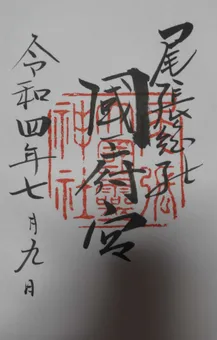 尾張総社
國府宮
令和四年七月九日